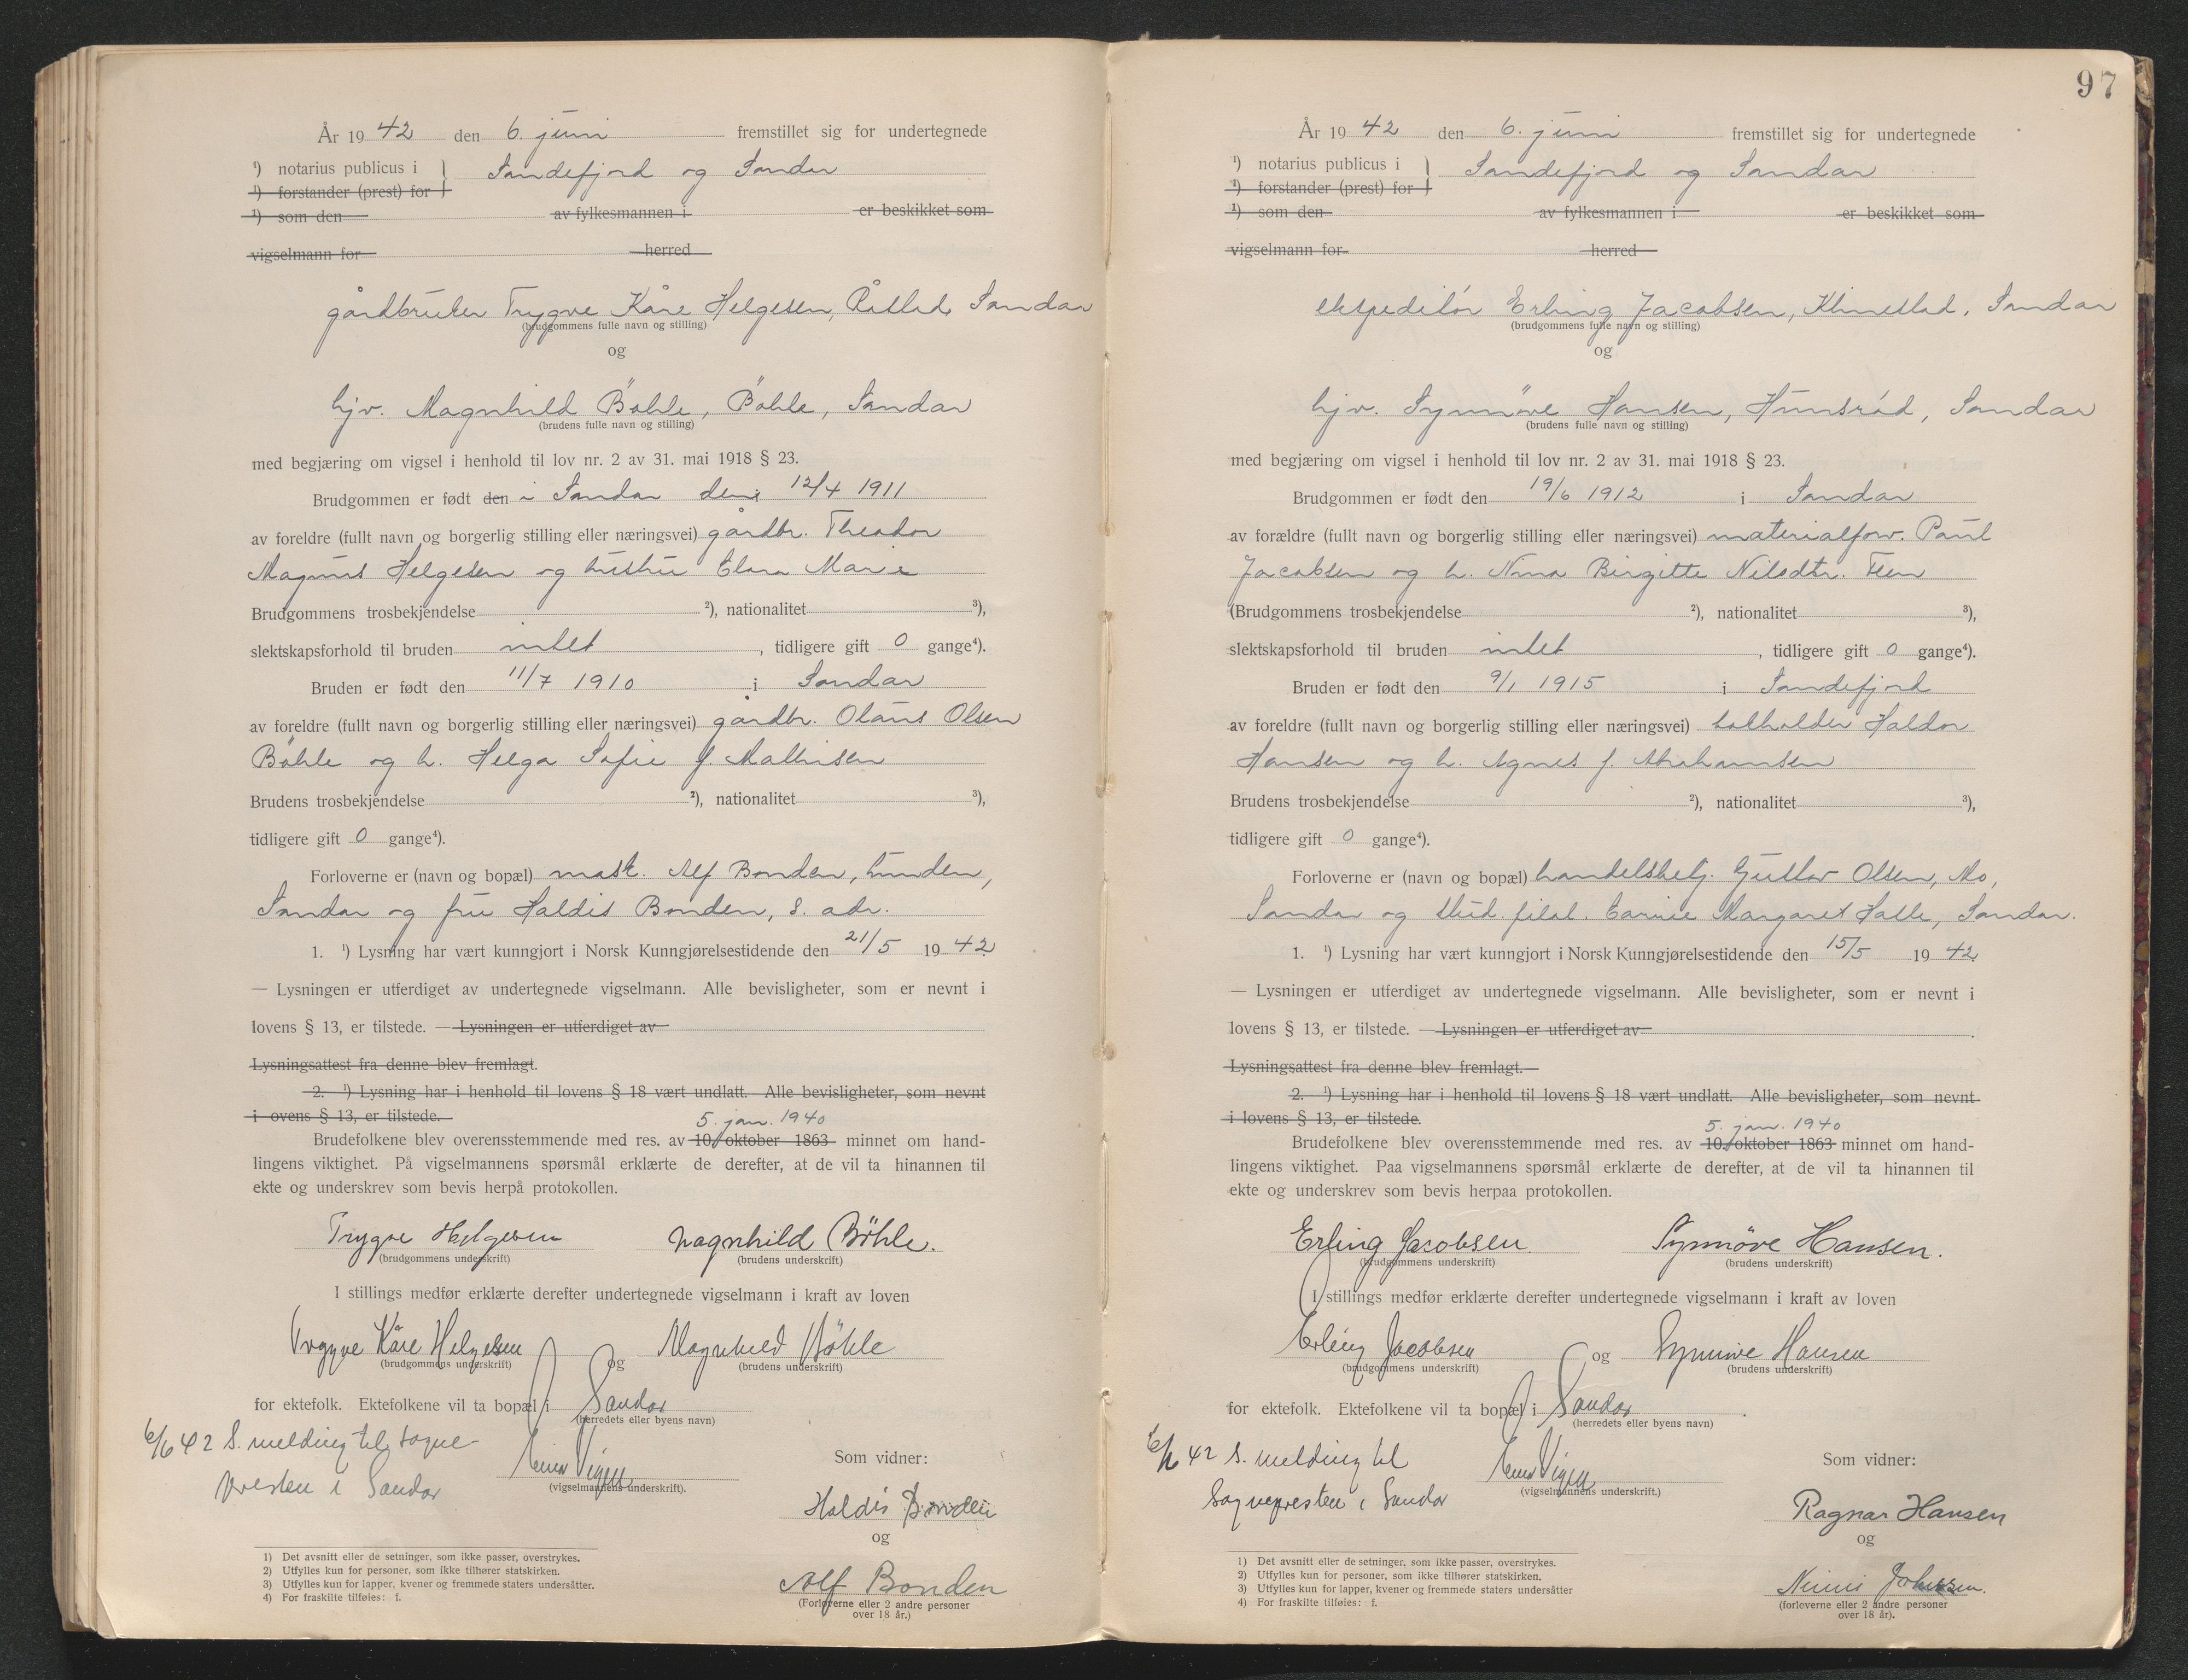 År 1942 den 6. juni fremstillet sig for undertegnede
¹) notarius publicus i } Sandefjord og Sandar
¹) forstander (prest) for
¹) som den av fylkesmannen i er beskikket som
vigselmann for herred
gårdbruker Trygve Kåre Helgesen, Råstad, Sandar
(brudgommens fulle navn og stilling)
og
hjv. Magnhild Böhle, Böhle, Sandar
(brudens fulle navn og stilling)
med begjæring om vigsel i henhold til lov nr. 2 av 31. mai 1918 § 23.
Brudgommen er født den i Sandar den 12/4 1911
av foreldre (fullt navn og borgerlig stilling eller næringsvei) gårdbr. Theodor
Magnus Helgesen og hustru Clara Marie
Brudgommens trosbekjendelse ²), nationalitet ³),
slektskapsforhold til bruden intet, tidligere gift 0 gange⁴).
Bruden er født den 11/7 1910 i Sandar
av foreldre (fullt navn og borgerlig stilling eller næringsvei) gårdbr. Olaus Olsen
Böhle og h. Helga Sofie f. Mathisen
Brudens trosbekjendelse ²), nationalitet ³),
tidligere gift 0 gange⁴).
Forloverne er (navn og bopæl) mask. Alf Bonden, Lunden,
Sandar og fru Haldis Bonden, s. adr.
1. ¹) Lysning har vært kunngjort i Norsk Kunngjørelsestidende den 21/5 1942
— Lysningen er utferdiget av undertegnede vigselmann. Alle bevisligheter, som er nevnt i
lovens § 13, er tilstede. — Lysningen er utferdiget av
Lysningsattest fra denne blev fremlagt.
2. ¹) Lysning har i henhold til lovens § 18 vært undlatt. Alle bevisligheter, som nevnt
i ovens § 13, er tilstede.
5. jan. 1940
Brudefolkene blev overensstemmende med res. av 10. oktober 1863 minnet om hand-
lingens viktighet. På vigselmannens spørsmål erklærte de derefter, at de vil ta hinannen til
ekte og underskrev som bevis herpå protokollen.
Trygve Helgesen Magnhild Böhle.
(brudgommens underskrift) (brudens underskrift)
I stillings medfør erklærte derefter undertegnede vigselmann i kraft av loven
Trygve Kåre Helgesen og Magnhild Böhle
(brudgommens underskrift) (brudens underskrift)
for ektefolk. Ektefolkene vil ta bopæl i Sandar
(herredets eller byens navn)
6/6 42 S. melding til sogne-
presten i Sandar
Vigen
(vigselmannens underskrift).
Som vidner:
Haldis Bonden
og
Alf Bonden
(Forloverne eller 2 andre personer
over 18 år.)
1) Det avsnitt eller de setninger, som ikke passer, overstrykes.
2) Utfylles kun for personer, som ikke tilhører statskirken.
3) Utfylles kun for lapper, kvener og fremmede staters undersåtter.
4) For fraskilte tilføies: f.
97
År 1942 den 6. juni fremstillet sig for undertegnede
¹) notarius publicus i } Sandefjord og Sandar
¹) forstander (prest) for
¹) som den av fylkesmannen i er beskikket som
vigselmann for herred
ekspeditör Erling Jacobsen, Klinestad, Sandar
(brudgommens fulle navn og stilling)
og
hjv. Synnöve Hansen, Hunsröd, Sandar
(brudens fulle navn og stilling)
med begjæring om vigsel i henhold til lov nr. 2 av 31. mai 1918 § 23.
Brudgommen er født den 19/6 1912 i Sandar
av forældre (fullt navn og borgerlig stilling eller næringsvei) materialforv. Paul
Jacobsen og h. Nina Birgitte Nilsdtr. Feen
(Brudgommens trosbekjendelse ²), nationalitet ³),
slektskapsforhold til bruden intet, tidligere gift 0 gange⁴).
Bruden er født den 9/1 1915 i Sandefjord
av foreldre (fullt navn og borgerlig stilling eller næringsvei) Haldor
Hansen og h. Agnes f. Abrahamsen
Brudens trosbekjendelse ²), nationalitet ³),
tidligere gift 0 gange⁴).
Forloverne er (navn og bopæl) handelsbetj. Gustav Olsen, Mo,
Sandar og stud. filol. Margaret Halle, Sandar.
1. ¹) Lysning har vært kunngjort i Norsk Kunngjørelsestidende den 15/5 1942
— Lysningen er utferdiget av undertegnede vigselmann. Alle bevisligheter, som er nevnt i
lovens § 13, er tilstede. — Lysningen er utferdiget av .
Lysningsattest fra denne blev fremlagt. —
2. ¹) Lysning har i henhold til lovens § 18 vært undlatt. Alle bevisligheter, som nevnt
i lovens § 13, er tilstede.
5. jan. 1940
Brudefolkene blev overensstemmende med res. av 10. oktober 1863 minnet om hand-
lingens viktighet. Paa vigselmannens spørsmål erklærte de derefter, at de vil ta hinannen til
ekte og underskrev som bevis herpaa protokollen.
Erling Jacobsen. Synnöve Hansen.
(brudgommens underskrift) (brudens underskrift)
I stillings medfør erklærte derefter undertegnede vigselmann i kraft av loven
Erling Jacobsen og Synnöve Hansen
(brudgommens underskrift) (brudens underskrift)
for ektefolk. Ektefolkene vil ta bopæl i Sandar.
(herredets eller byens navn)
6/6 42 S. melding til
Sognepresten i Sandar
Vigen
(vigselmannens underskrift.)
Som vidner:
Ragnar Hansen
og
Ninni
(forloverne eller 2 andre personer
over 18 år).
1) Det avsnitt eller de setninger, som ikke passer, overstrykes.
2) Utfylles kun for personer, som ikke tilhører statskirken.
3) Utfylles kun for lapper, kvener og fremmede staters undersåtter
4) For fraskilte tilføies: f.